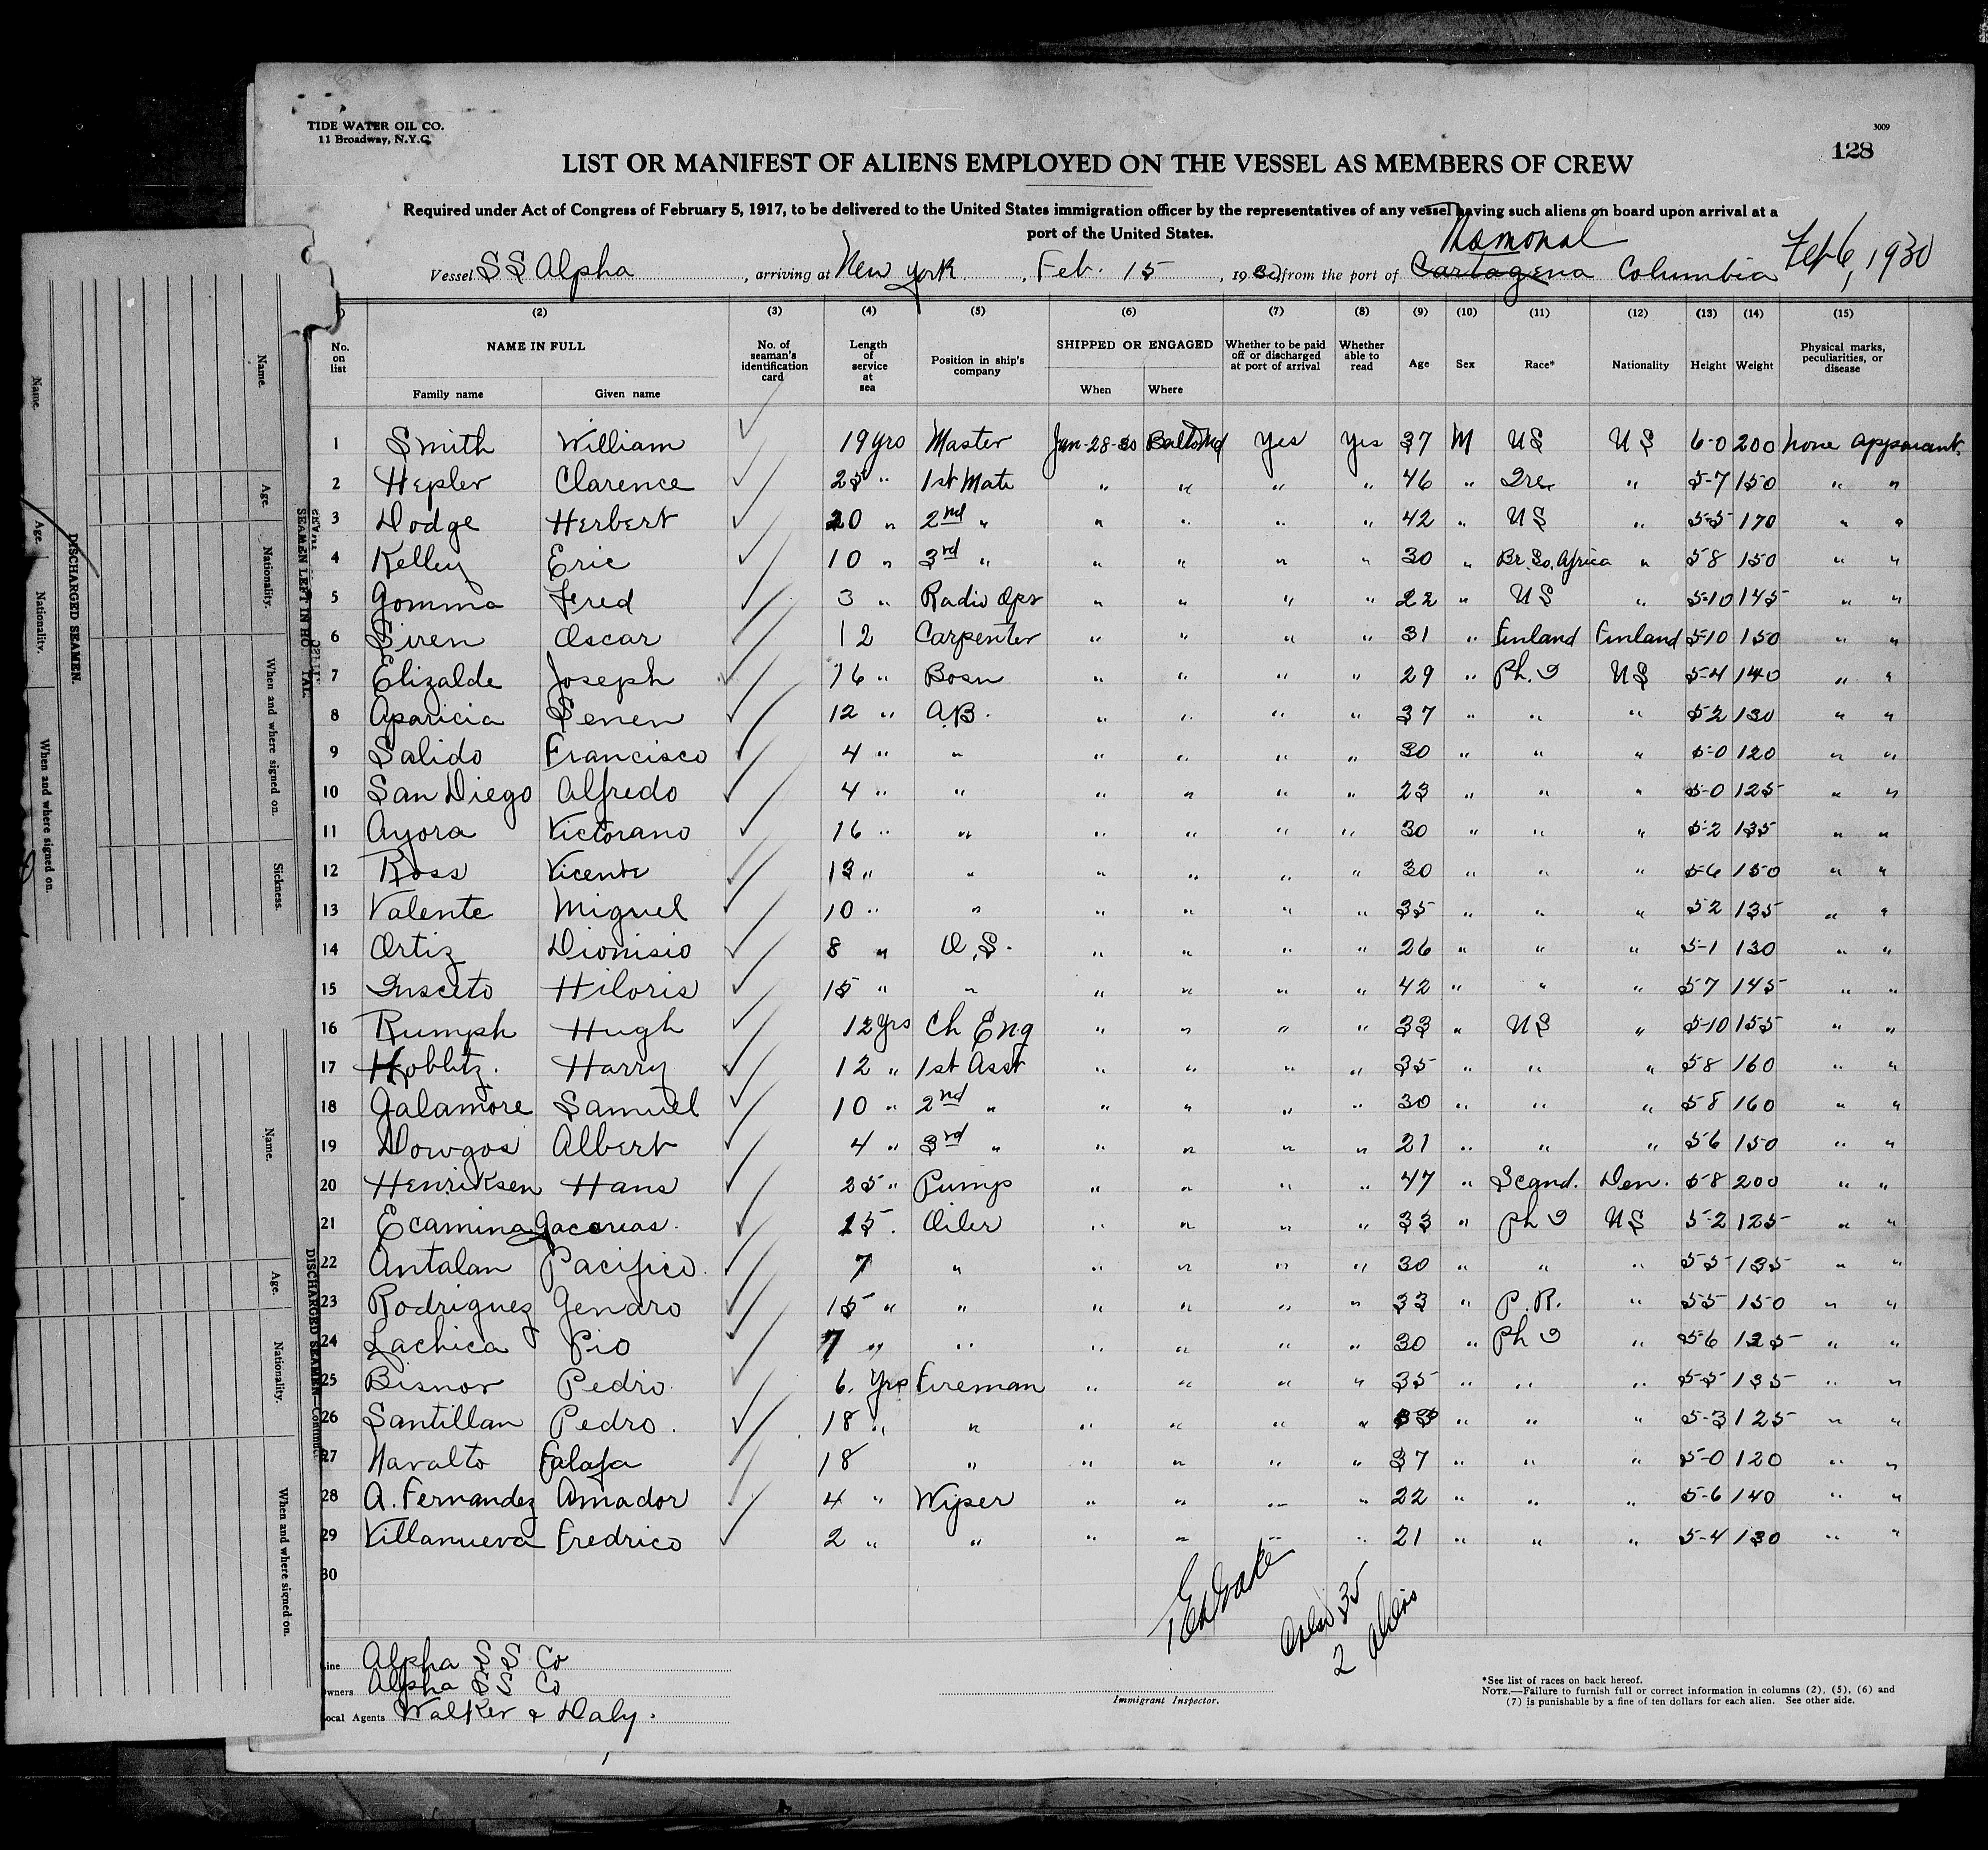 TIDE WATER OIL CO.
11 Broadway, N.Y.C.
3009
128
LIST OR MANIFEST OF ALIENS EMPLOYED ON THE VESSEL AS MEMBERS OF CREW
Required under Act of Congress of February 5, 1917, to be delivered to the United States immigration officer by the representatives of any vessel having such aliens on board upon arrival at a
port of the United States.
Mamonal
Vessel SS Alpha, arriving at New York, Feb. 15, 1930, from the port of Cartagena Columbia Feb 6, 1930
(2) (3) (4) (5) (6) (7) (8) (9) (10) (11) (12) (13) (14) (15)
No. on list NAME IN FULL Family name Given name No. of seaman's identification card Length of service at sea Position in ship's company SHIPPED OR ENGAGED When Where Whether to be paid off or discharged at port of arrival Whether able to read Age Sex Race* Nationality Height Weight Physical marks, peculiarities, or disease
1 Smith William 19 yrs Master Jan-28-30 Balto Md Yes Yes 37 M US US 6-0 200 none apparant.
2 Hepler Clarence 25 " 1st Mate " " " " 46 " Ire " 5-7 150 " "
3 Dodge Herbert 20 " 2nd " " " " " 42 " US " 5-5 170 " "
4 Kelley Eric 10 " 3rd " " " " " 30 " Br. So. Africa " 5 8 150 " "
5 Gomma Fred 3 " Radio Opr " " " " 22 " US " 5-10 145 " "
6 Siren Oscar 12 Carpenter " " " " 31 " Finland Finland 5-10 150 " "
7 Elizalde Joseph 16 " Bosn " " " " 29 " Ph. I US 5-4 140 " "
8 Aparicia Senen 12 " A.B. " " " " 37 " " " 5 2 130 " "
9 Salido Francisco 4 " " " " " " 30 " " " 5-0 120 " "
10 San Diego Alfredo 4 " " " " " " 23 " " " 5-0 125 " "
11 Ayora Victorano 16 " " " " " " 30 " " " 5-2 135 " "
12 Ross Vicente 13 " " " " " " 30 " " " 5-6 150 " "
13 Valente Miguel 10 " " " " " " 35 " " " 5 2 135 " "
14 Ortiz Dionisio 8 " O.S. " " " " 26 " " " 5-1 130 " "
15 Insceto Hiloris 15 " " " " " " 42 " " " 5 7 145 " "
16 Rumph Hugh 12 yrs Ch Eng " " " " 33 " US " 5-10 155 " "
17 Hoblitz. Harry 12 " 1st Asst " " " " 35 " " " 5 8 160 " "
18 Galamore Samuel 10 " 2nd " " " " " 30 " " " 5 8 160 " "
19 Dowgos Albert 4 " 3rd " " " " " 21 " " " 5 6 150 " "
20 Henriksen Hans 25 " Pump " " " " 47 " Scand. Den. 5-8 200 " "
21 Ecamina Jacereas. 15. Oiler " " " " 33 " Ph I US 5-2 125 " "
22 Antalan Pacifico. 7 " " " " " 30 " " " 5 5 135 " "
23 Rodriguez Genaro 15 " " " " " " 33 " P.R. " 5 5 150 " "
24 Lachica Pio 7 " " " " " " 30 " Ph I " 5-6 125 " "
25 Bisnor Pedro. 6. yrs Fireman " " " " 35 " " " 5-5 135 " "
26 Santillan Pedro. 18 " " " " " " 33 " " " 5-3 125 " "
27 Navalto Falafa 18 " " " " " 37 " " " 5-0 120 " "
28 A. Fernandez Amador 4 " Wiper " " " " 22 " " " 5-6 140 " "
29 Villanueva Fredrico 2 " " " " " " 21 " " " 5-4 130 " "
30
35
2 aliens
Line Alpha S S Co
Owners Alpha S S Co
Local Agents Walker & Daly.
Immigrant Inspector.
*See list of races on back hereof.
NOTE.—Failure to furnish full or correct information in columns (2), (5), (6) and
(7) is punishable by a fine of ten dollars for each alien. See other side.
Name. Age. Nationality. When and where signed on.
DISCHARGED SEAMEN.
Name. Age. Nationality. When and where signed on. Sickness.
SEAMEN LEFT IN HO TAL.
DISCHARGED SEAMEN
Name. Age. Nationality. When and where signed on.